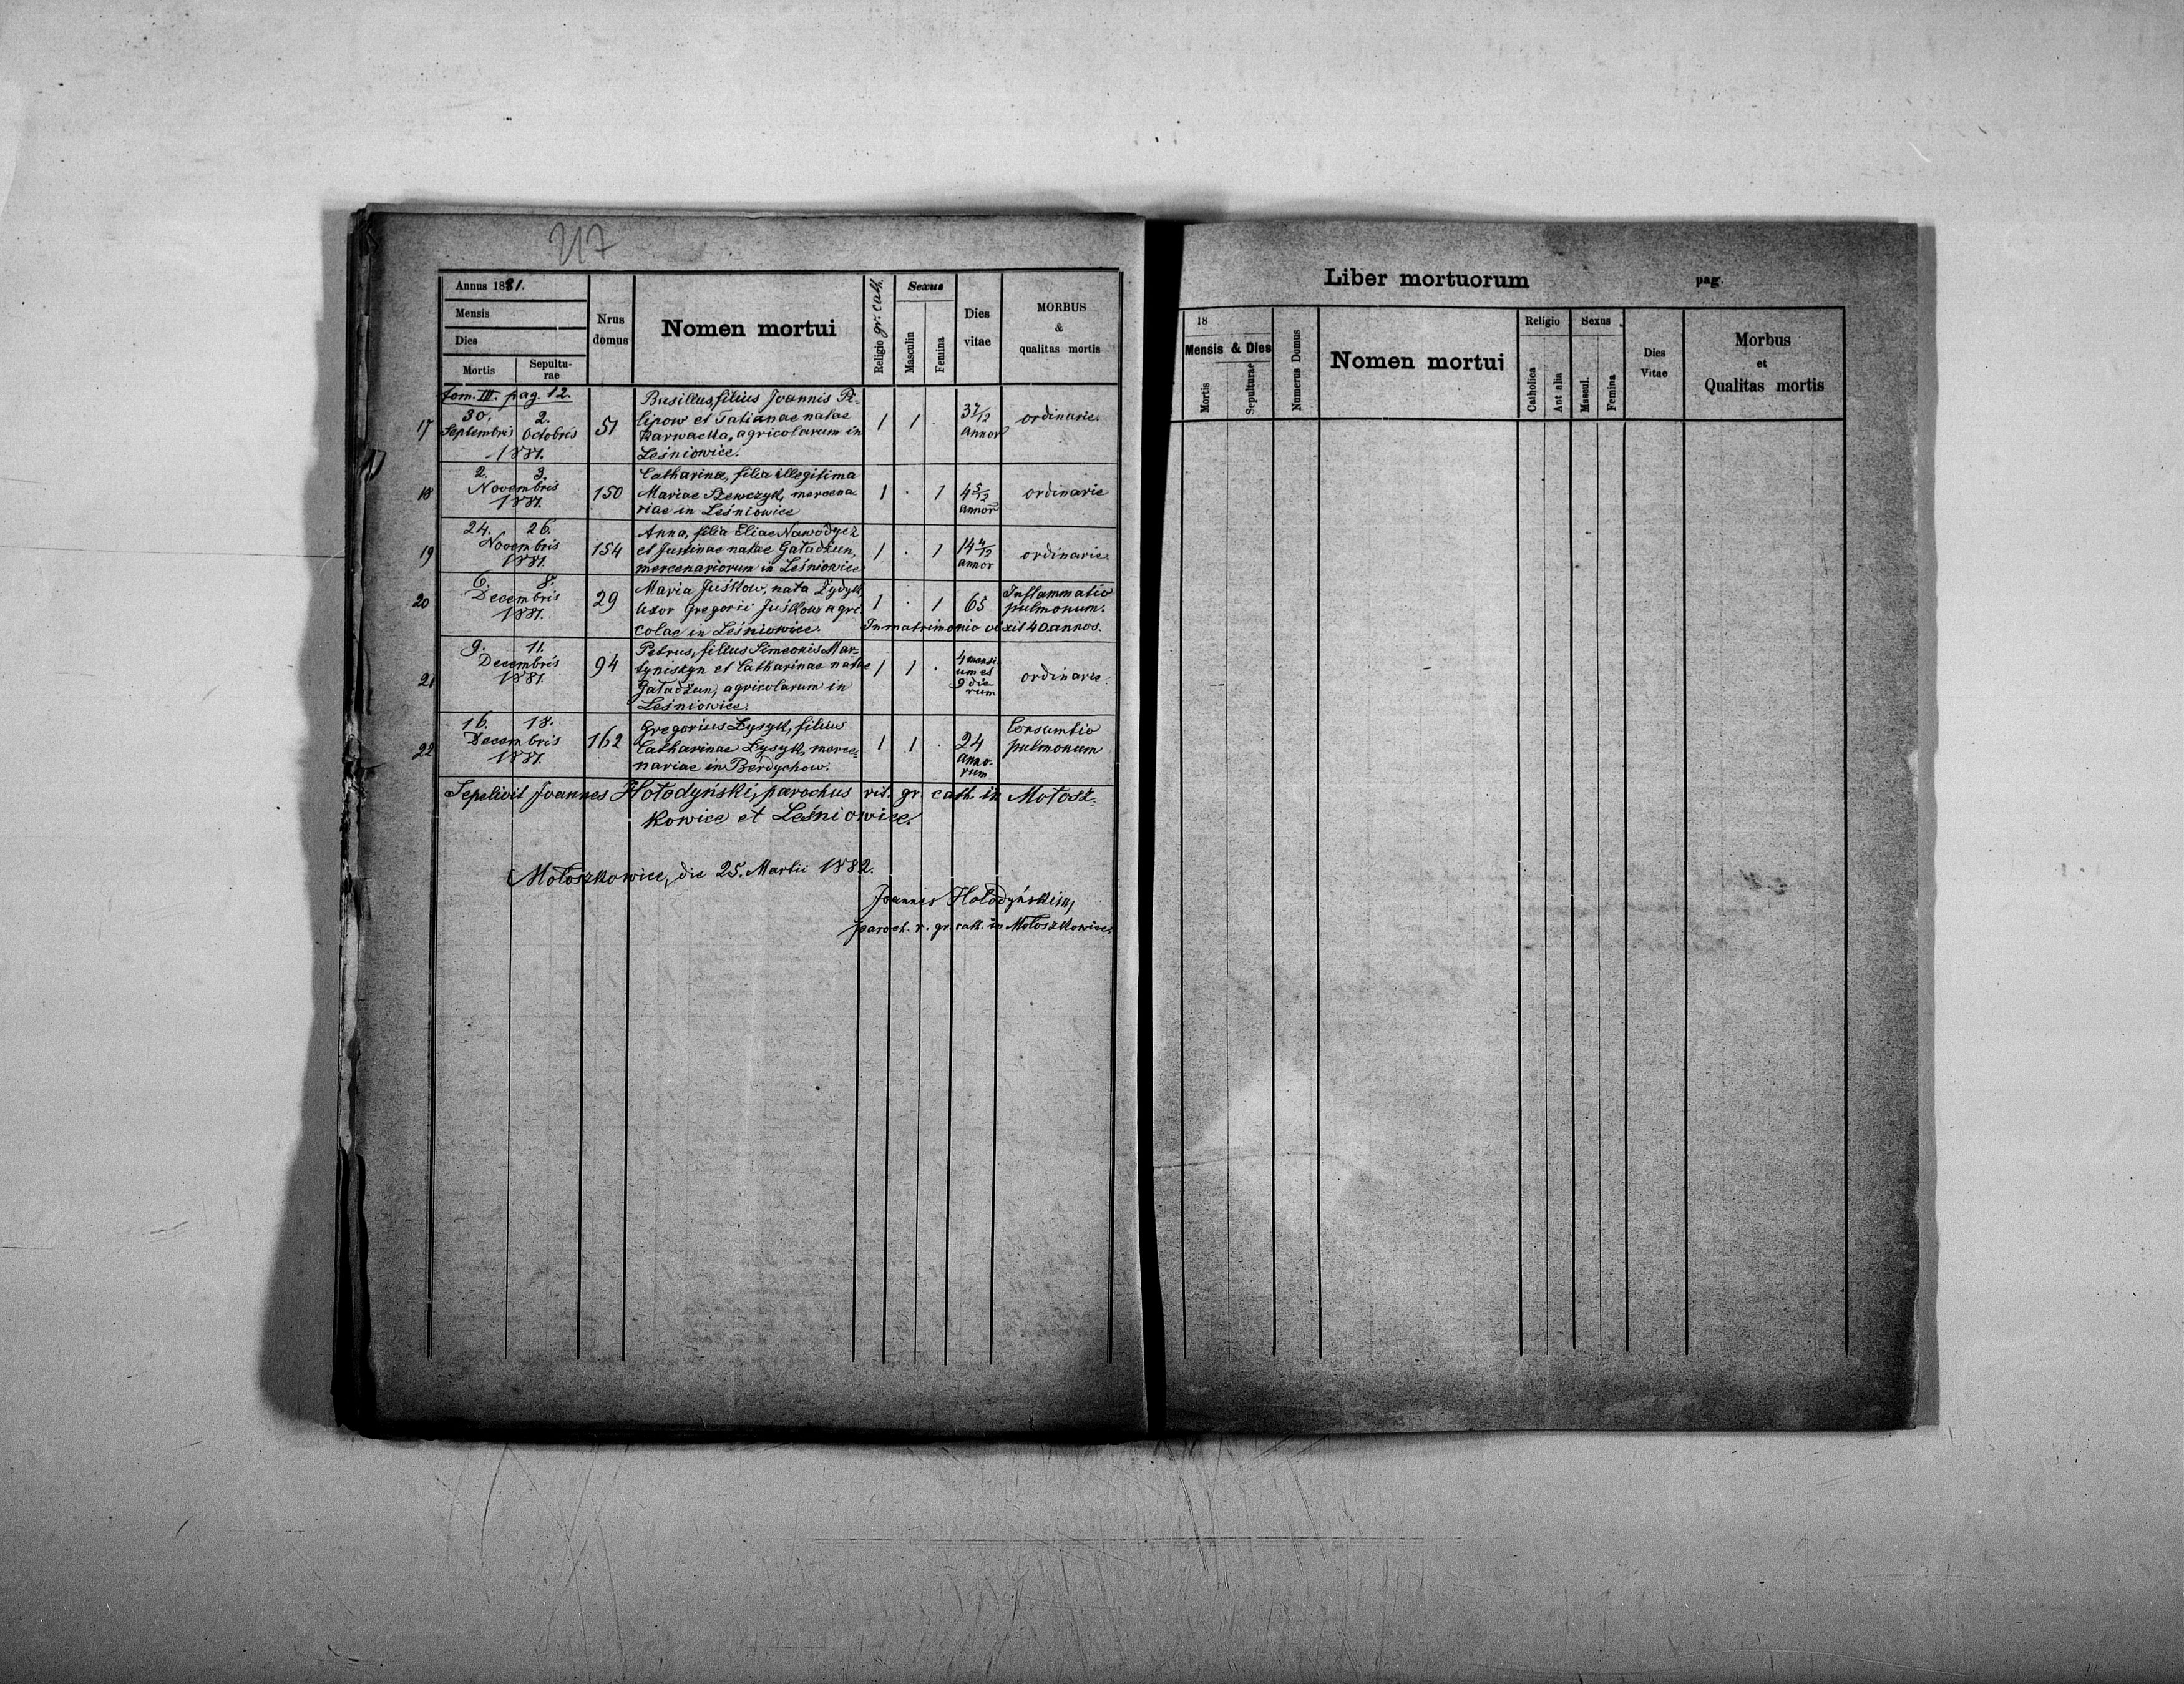 217
Annus 1881.
Mensis
Dies
Mortis
Sepultu-
rae
Nrus
domus
Nomen mortui
Religio gr. cath.
Sexus
Masculin
Femina
Dies
vitae
MORBUS
&
qualitas mortis
tom. III. pag. 12.
17
30. 2.
Septembris Octobris
1881.
51
Basilius, filius Joannis Pi-
lipow et Tatianae natae
agricolarum in
Leśniowice.
1 1 .
3 7/12
annor
ordinarie.
18
2. 3.
Novembris
1881.
150
Catharina, filia illegitima
Mariae Szewczyk, mercena-
riae in Leśniowice
1 . 1
4 5/12
annor
ordinarie
19
24. 26.
Novembris
1881.
154
Anna, filia Eliae Nawodycz
et Justinae natae Gaładżun,
mercenariorum in Leśniowice
1 . 1
14 4/12
annor
ordinarie.
20
6. 8.
Decembris
1881.
29
Maria Juśkow, nata Żydyk,
uxor Gregorii Juśkow agri
colae in Leśniowice.
1 . 1
65
Inflammatio
pulmonum.
In matrimonio vixit 40 annos.
21
9. 11.
Decembris
1881.
94
Petrus, filius Simeonis Mar-
tyniszyn et Catharinae natae
Gaładżun, agricolarum in
Leśniowice.
1 1 .
4 mensi
um et
9 die
rum
ordinarie.
22
16. 18.
Decembris
1881.
162
Gregorius Łysyk, filius
Catharinae Łysyk, merce-
nariae in Berdychow.
1 1 .
24
anno-
rum
Consumtio
pulmonum
Sepelivit Joannes Hołodyński, parochus rit. gr. cath. in Mołosz-
kowice et Leśniowice.
Mołoszkowice, die 25. Martii 1882.
Joannes Hołodyński
paroch. r. gr. cath. in Mołoszkowice.
Liber mortuorum
pag.
18
Mensis & Dies
Mortis
Sepulturae
Numerus Domus
Nomen mortui
Religio
Catholica
Aut alia
Sexus
Mascul.
Femina
Dies
Vitae
Morbus
et
Qualitas mortis